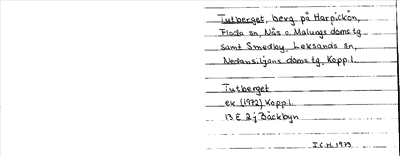 Tutberget, berg på Harpickön,
Floda sn, Nås o. Malungs doms tg
samt Smedby, Leksands sn,
Nedansiljans doms tg, Kopp.l.
Tutberget
ek. (1972) Kopp.l.
13 E 2 j Bäckbyn
I.C.H. 1973